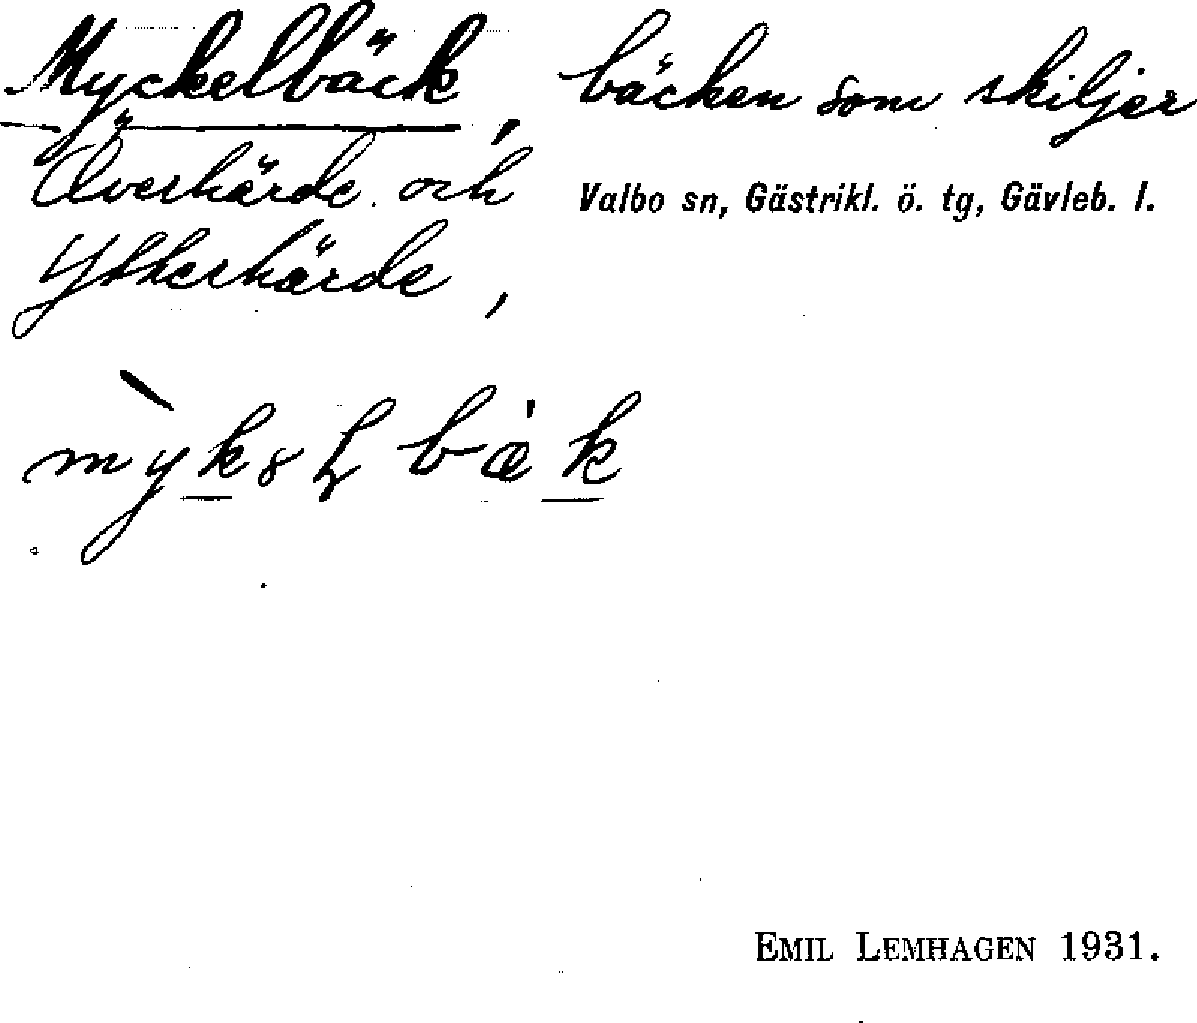 Myckelbäck, bäcken som skiljer
Överhärde och
Valbo sn, Gästrikl. ö. tg, Gävleb. l.
Ytterhärde,
EMIL LEMHAGEN 1931.